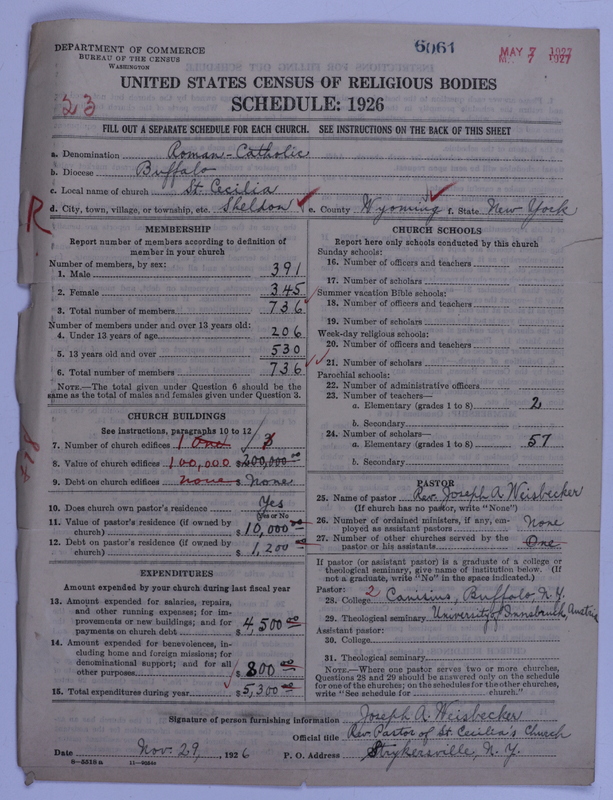 6061
MAY 7 1927
DEPARTMENT OF COMMERCE
BUREAU OF THE CENSUS
WASHINGTON
UNITED STATES CENSUS OF RELIGIOUS BODIES
SCHEDULE: 1926
23
FILL OUT A SEPARATE SCHEDULE FOR EACH CHURCH. SEE INSTRUCTIONS ON THE BACK OF THIS SHEET
a. Denomination Roman-Catholic
b. Diocese Buffalo
c. Local name of church St. Cecilia
d. City, town, village, or township, etc. Sheldon e. County Wyoming f. State New York
R
MEMBERSHIP
Report number of members according to definition of
member in your church
Number of members, by sex:
1. Male 391
2. Female 345
3. Total number of members 736
Number of members under and over 13 years old:
4. Under 13 years of age 206
5. 13 years old and over 530
6. Total number of members 736
NOTE.—The total given under Question 6 should be the
same as the total of males and females given under Question 3.
CHURCH BUILDINGS
See instructions, paragraphs 10 to 12
7. Number of church edifices 1 One
8. Value of church edifices 100,000 $ 200,000.00
9. Debt on church edifices none $ None
10. Does church own pastor's residence Yes
Yes or No
11. Value of pastor's residence (if owned by
church) $ 10,000.00
12. Debt on pastor's residence (if owned by
church) $ 1,200.00
EXPENDITURES
Amount expended by your church during last fiscal year
13. Amount expended for salaries, repairs,
and other running expenses; for im-
provements or new buildings; and for
payments on church debt $ 4,500.00
14. Amount expended for benevolences, in-
cluding home and foreign missions; for
denominational support; and for all
other purposes $ 800.00
15. Total expenditures during year $ 5,300.00
CHURCH SCHOOLS
Report here only schools conducted by this church
Sunday schools:
16. Number of officers and teachers
17. Number of scholars
Summer vacation Bible schools:
18. Number of officers and teachers
19. Number of scholars
Week-day religious schools:
20. Number of officers and teachers
21. Number of scholars
Parochial schools:
22. Number of administrative officers
23. Number of teachers—
a. Elementary (grades 1 to 8) 2
b. Secondary
24. Number of scholars—
a. Elementary (grades 1 to 8) 57
b. Secondary
PASTOR
25. Name of pastor Rev. Joseph A. Weisbecker
(If church has no pastor, write "None")
26. Number of ordained ministers, if any, em-
ployed as assistant pastors None
27. Number of other churches served by the
pastor or his assistants One
If pastor (or assistant pastor) is a graduate of a college or
theological seminary, give name of institution below. (If
not a graduate, write "No" in the space indicated.)
Pastor: 2
28. College Canisius, Buffalo N.Y.
29. Theological seminary University of Innsbruck, Austria
Assistant pastor:
30. College
31. Theological seminary
NOTE.—Where one pastor serves two or more churches,
Questions 28 and 29 should be answered only on the schedule
for one of the churches; on the schedules for the other churches,
write "See schedule for church."
Signature of person furnishing information Joseph A. Weisbecker
Official title Rev. Pastor of St. Cecilia's Church
Date Nov. 29, 1926 P. O. Address Strykersville, N.Y.
8-5518 a